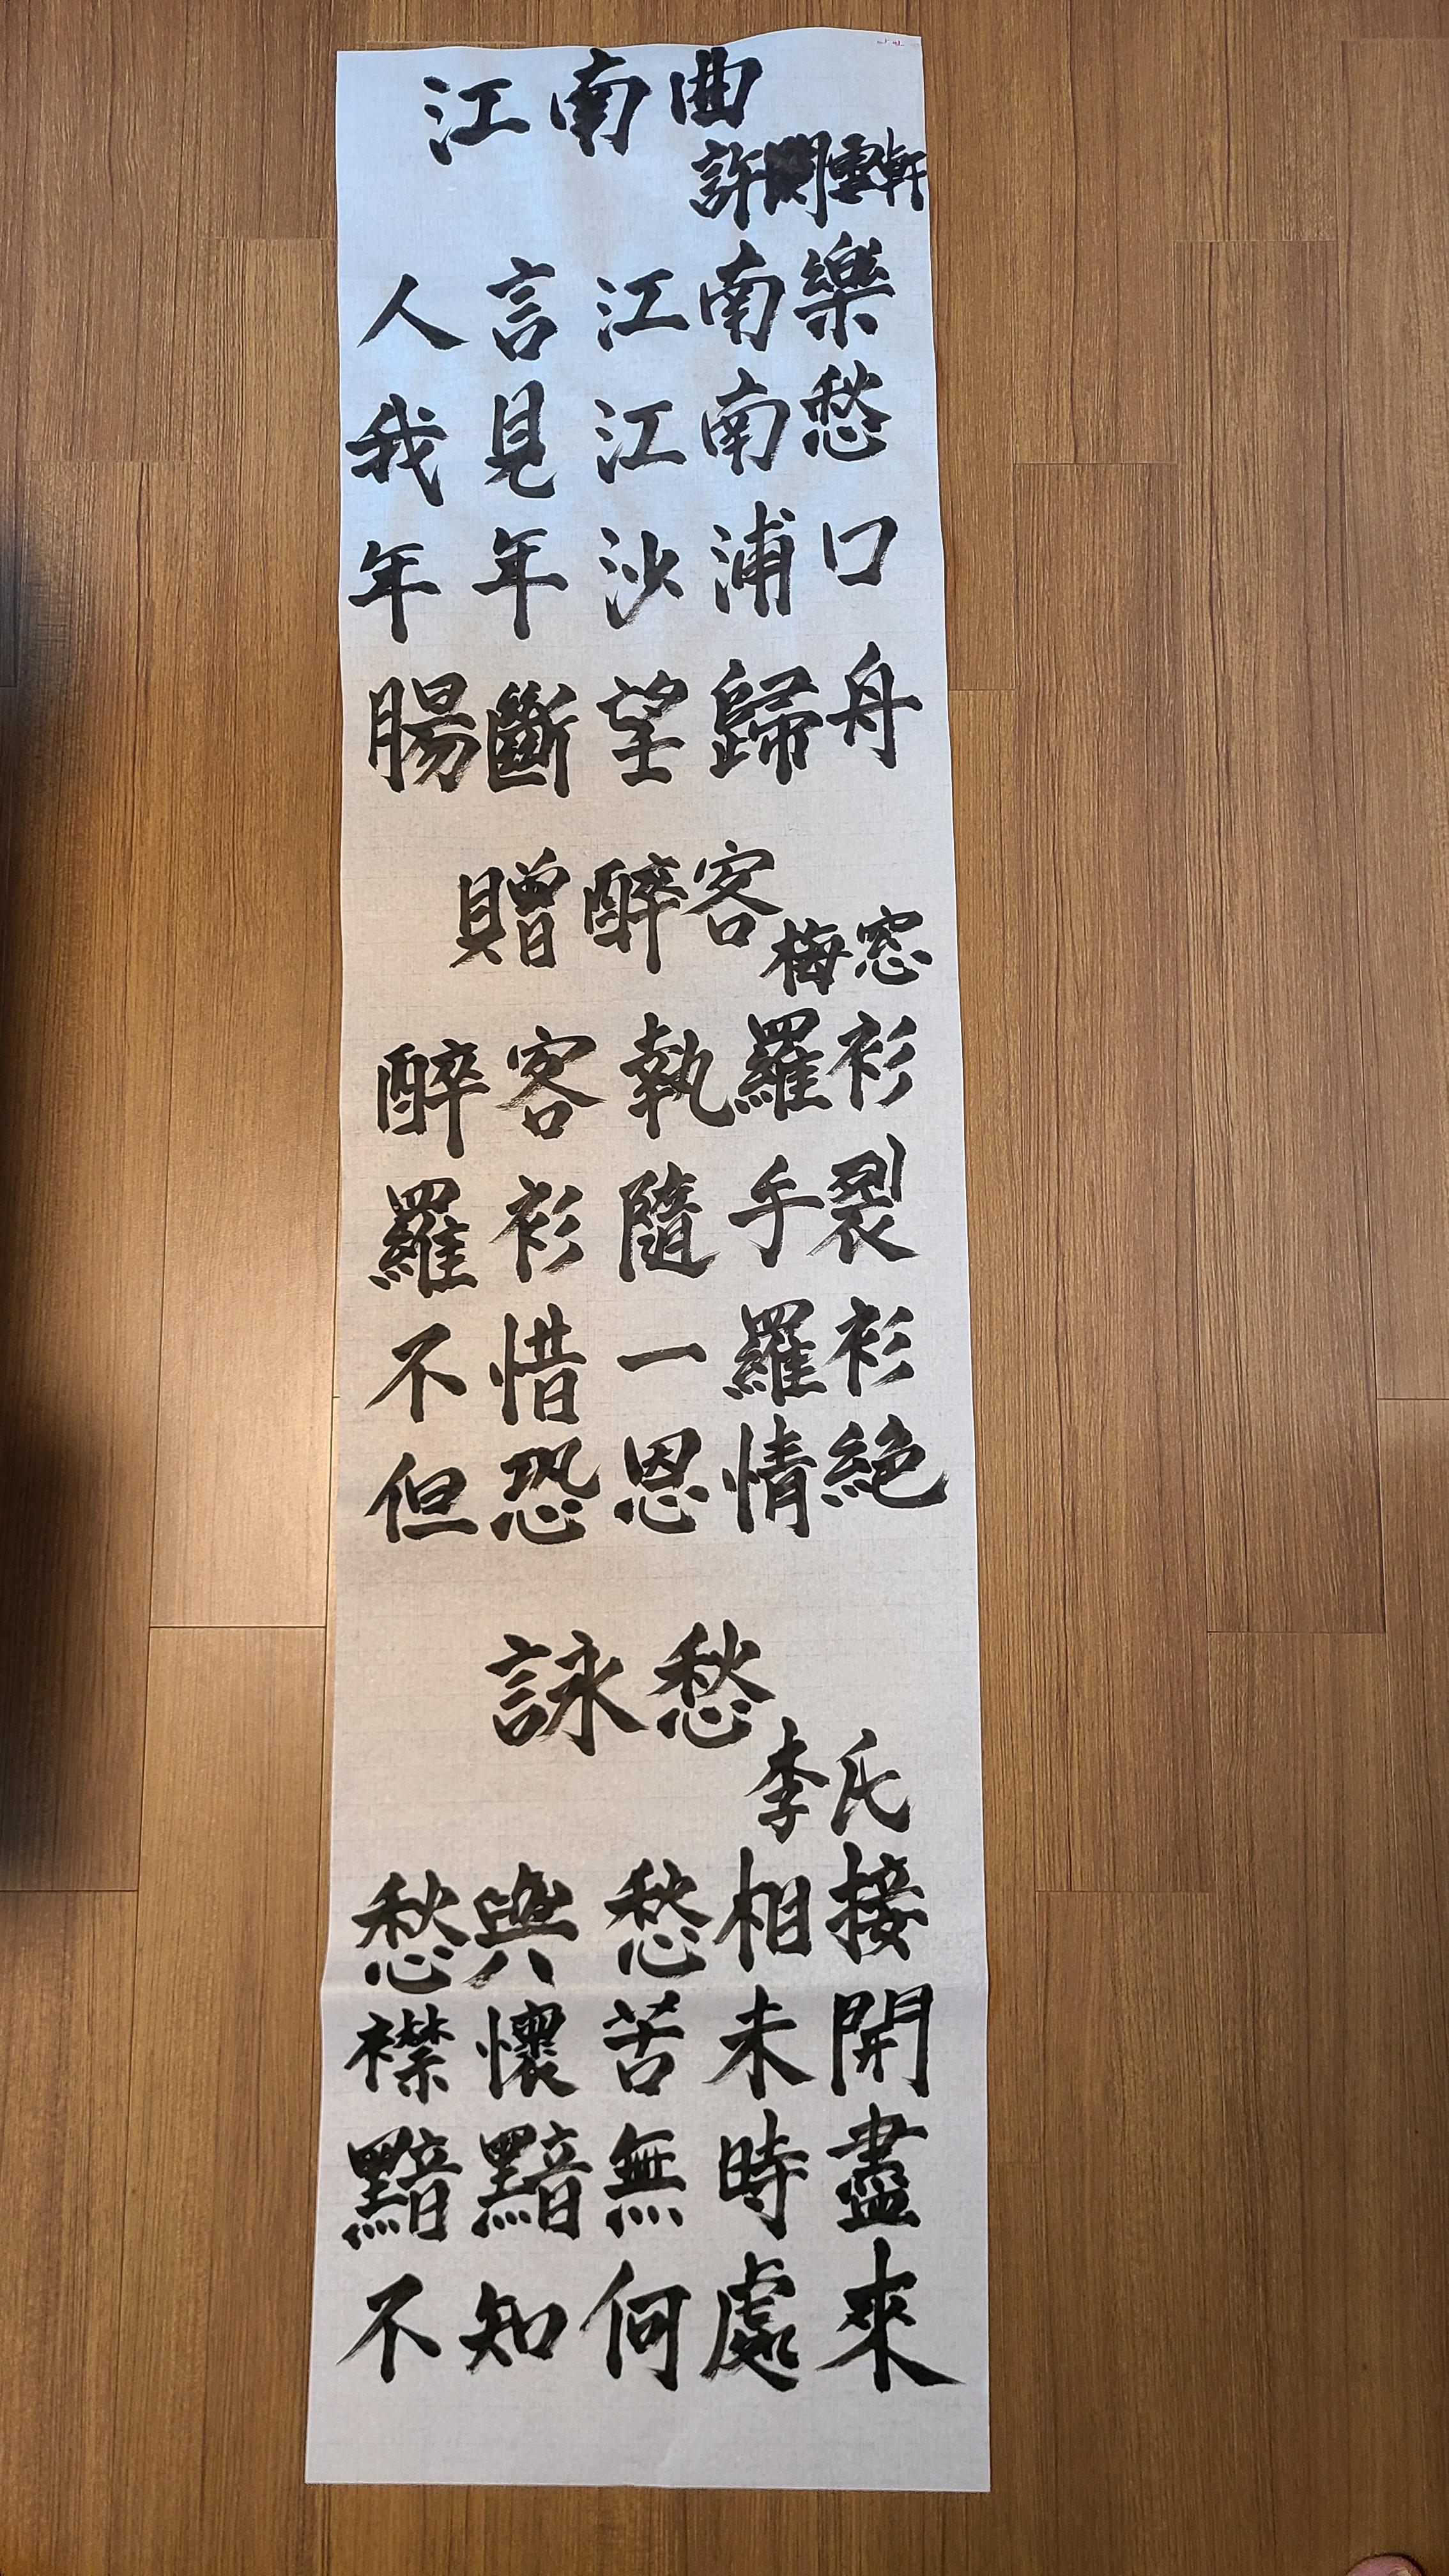 江南曲
許閑雪軒
人言江南樂
我見江南愁
年年沙浦口
腸斷望歸舟
贈醉客
梅窓
醉客執羅衫
羅衫隨手裂
不惜一羅衫
但恐恩情絶
詠愁
李氏
愁與愁相接
襟懷苦未開
黯黯無時盡
不知何處來